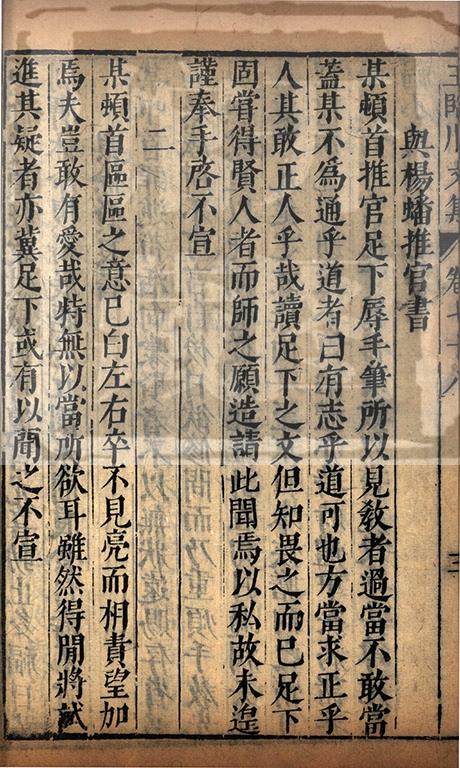 王臨川文集 卷七十八 三
與楊蟠推官書
某頓首推官足下辱手筆所以見敎者過當不敢當
蓋某不爲通乎道者曰有志乎道可也方當求正乎
人其敢正人乎哉讀足下之文但知畏之而已足下
固嘗得賢人者而師之願造請此聞焉以私故未遑
謹奉手啓不宣
二
某頓首區區之意已白左右卒不見亮而相責望加
焉夫豈敢有愛哉特無以當所欲耳雖然得閒將試
進其疑者亦冀足下或有以聞之不宣